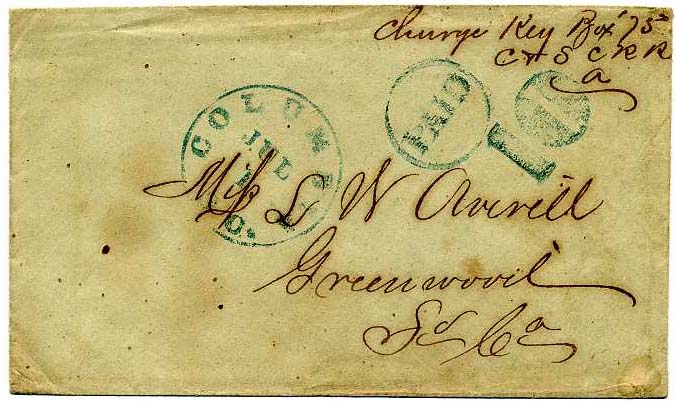 Charge Key Box 75
C & S C R R
a
PAID
10
COLUMBIA
JUL
S.C.
Mrs L W Averill
Greenwood
So Ca